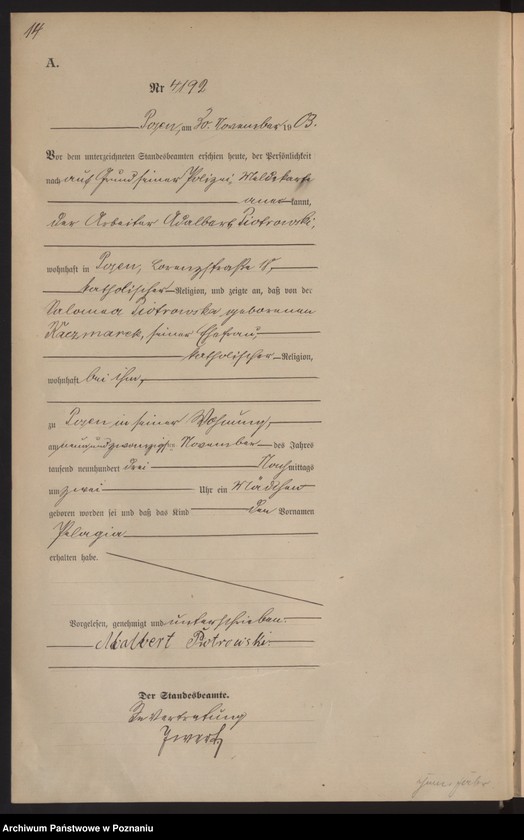 14
A.
Nr 4192
Posen, am 30. November 1903.
Vor dem unterzeichneten Standesbeamten erschien heute, der Persönlichkeit
nach auf Grund seiner Polizei-Meldekarte
anerkannt,
der Arbeiter Adalbert Piotrowski,
wohnhaft in Posen, Lorenzstraße
katholischer Religion, und zeigte an, daß von der
Salomea Piotrowska, geborenen
Kaczmarek, seiner Ehefrau,
katholischer Religion,
wohnhaft bei ihm,
zu Posen in seiner Wohnung,
am neunundzwanzigsten November des Jahres
tausend neunhundert drei Nachmittags
um zwei Uhr ein Mädchen
geboren worden sei und daß das Kind den Vornamen
Pelagia
erhalten habe.
Vorgelesen, genehmigt und unterschrieben.
Adalbert Piotrowski.
Der Standesbeamte.
In Vertretung
Archiwum Państwowe w Poznaniu